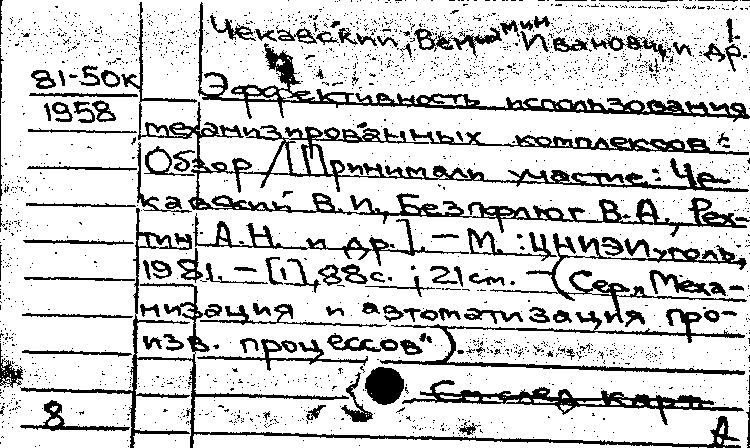 1.
Чекавский, Вениамин Иванович и др.
81-50к Эффективность использования
1958 механизированных комплексов:
Обзор /[Принимали участие: Че-
кавский В.И., Безпфлюг В.А., Рех-
тин А.Н. и др.]. – М.: ЦНИЭИуголь,
1981. – [1], 88с.; 21см. – (Сер. „Меха-
низация и автоматизация про-
изв. процессов").
См след карт
8